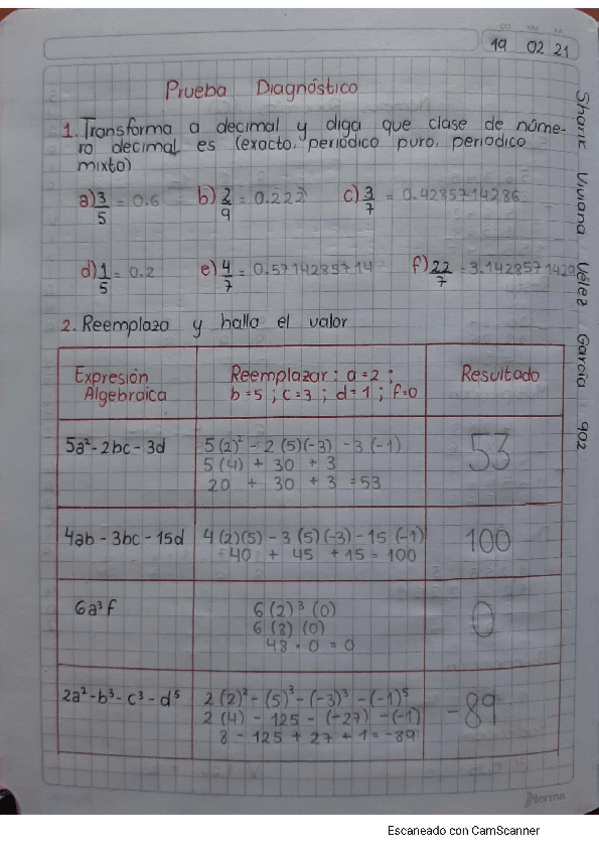 19 02 21
Prueba Diagnóstico
1. Transforma a decimal y diga que clase de núme-
ro decimal es (exacto, periódico puro, periodico
mixto)
a) 3/5 = 0.6 b) 2/9 = 0.222 c) 3/7 = 0.4285714286
d) 1/5 = 0.2 e) 4/7 = 0.5714285714 f) 22/7 = 3.142857142
2. Reemplaza y halla el valor
Expresión
Algebraica
Reemplazar: a=2;
b=5; c=3; d=1; f=0
Resultado
5a²-2bc-3d
5(2)² - 2(5)(-3) - 3(-1)
5(4) + 30 + 3
20 + 30 + 3 = 53
53
4ab - 3bc - 15d
4(2)(5) - 3(5)(-3) - 15(-1)
40 + 45 + 15 = 100
100
6a³f
6(2)³(0)
6(8)(0)
48 · 0 = 0
0
2a²-b³-c³-d⁵
2(2)² - (5)³ - (-3)³ - (-1)⁵
2(4) - 125 - (-27) - (-1)
8 - 125 + 27 + 1 = -89
-89
Sharik Viviana Vélez García 902
Norma
Escaneado con CamScanner